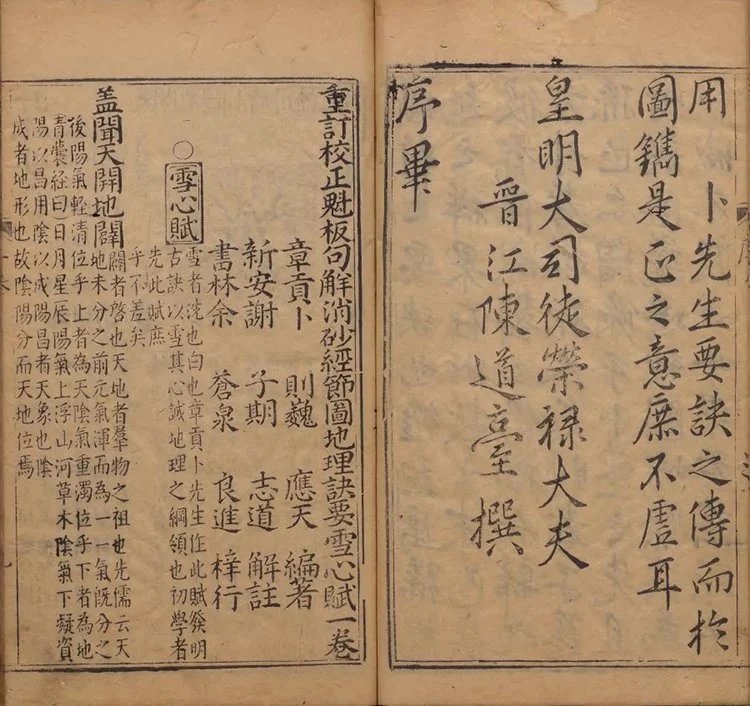 用 卜先生要訣之傳而於
圖鐫是正之意庶不虛耳
皇明大司徒榮祿大夫
晉江陳道臺撰
序畢
重訂校正魁板句解消砂經節圖地理訣要雪心賦一卷
章貢卜 則巍 應天 編著
新安謝 子期 志道 解註
書林余 蒼泉 良進 梓行
○雪心賦
雪者洗也白也章貢卜先生作此賦發明
古訣以雪其心誠地理之綱領也初學者
先此賦庶
乎不差矣
蓋聞天開地闢
闢者啓也天地者羣物之祖也先儒云天
地未分之前元氣渾而為一一氣既分之
後陽氣輕清位乎上者為天陰氣重濁位乎下者為地
青囊經曰日月星辰陽氣上浮山河草木陰氣下凝資
陽以昌用陰以成陽昌者天象也陰
成者地形也故陰陽分而天地位焉